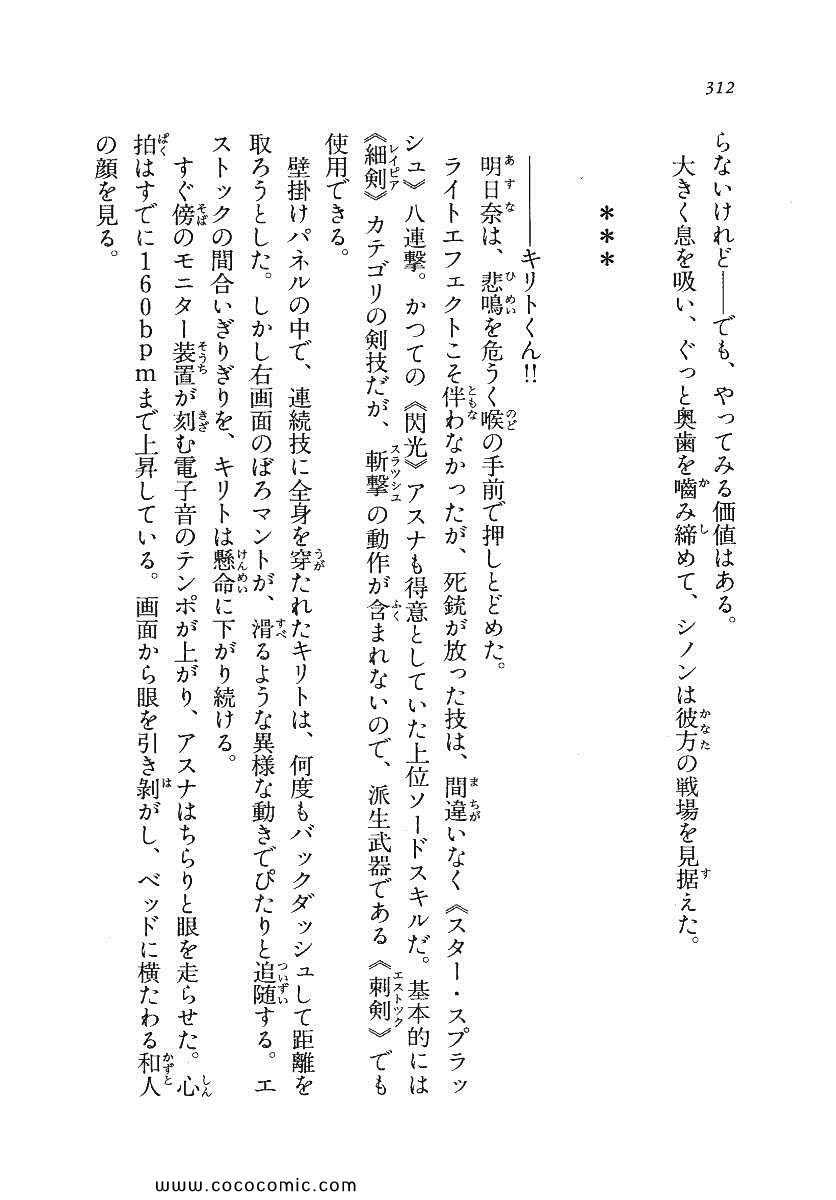 312
らないけれど――でも、やってみる価値はある。
大きく息を吸い、ぐっと奥歯を嚙み締めて、シノンは彼方の戦場を見据えた。
＊＊＊
――キリトくん!!
明日奈は、悲鳴を危うく喉の手前で押しとどめた。
ライトエフェクトこそ伴わなかったが、死銃が放った技は、間違いなく《スター・スプラッ
シュ》八連撃。かつての《閃光》アスナも得意としていた上位ソードスキルだ。基本的には
《細剣》カテゴリの剣技だが、斬撃の動作が含まれないので、派生武器である《刺剣》でも
使用できる。
壁掛けパネルの中で、連続技に全身を穿たれたキリトは、何度もバックダッシュして距離を
取ろうとした。しかし右画面のぼろマントが、滑るような異様な動きでぴたりと追随する。エ
ストックの間合いぎりぎりを、キリトは懸命に下がり続ける。
すぐ傍のモニター装置が刻む電子音のテンポが上がり、アスナはちらりと眼を走らせた。心
拍はすでに160bpmまで上昇している。画面から眼を引き剝がし、ベッドに横たわる和人
の顔を見る。
www.cococomic.com/